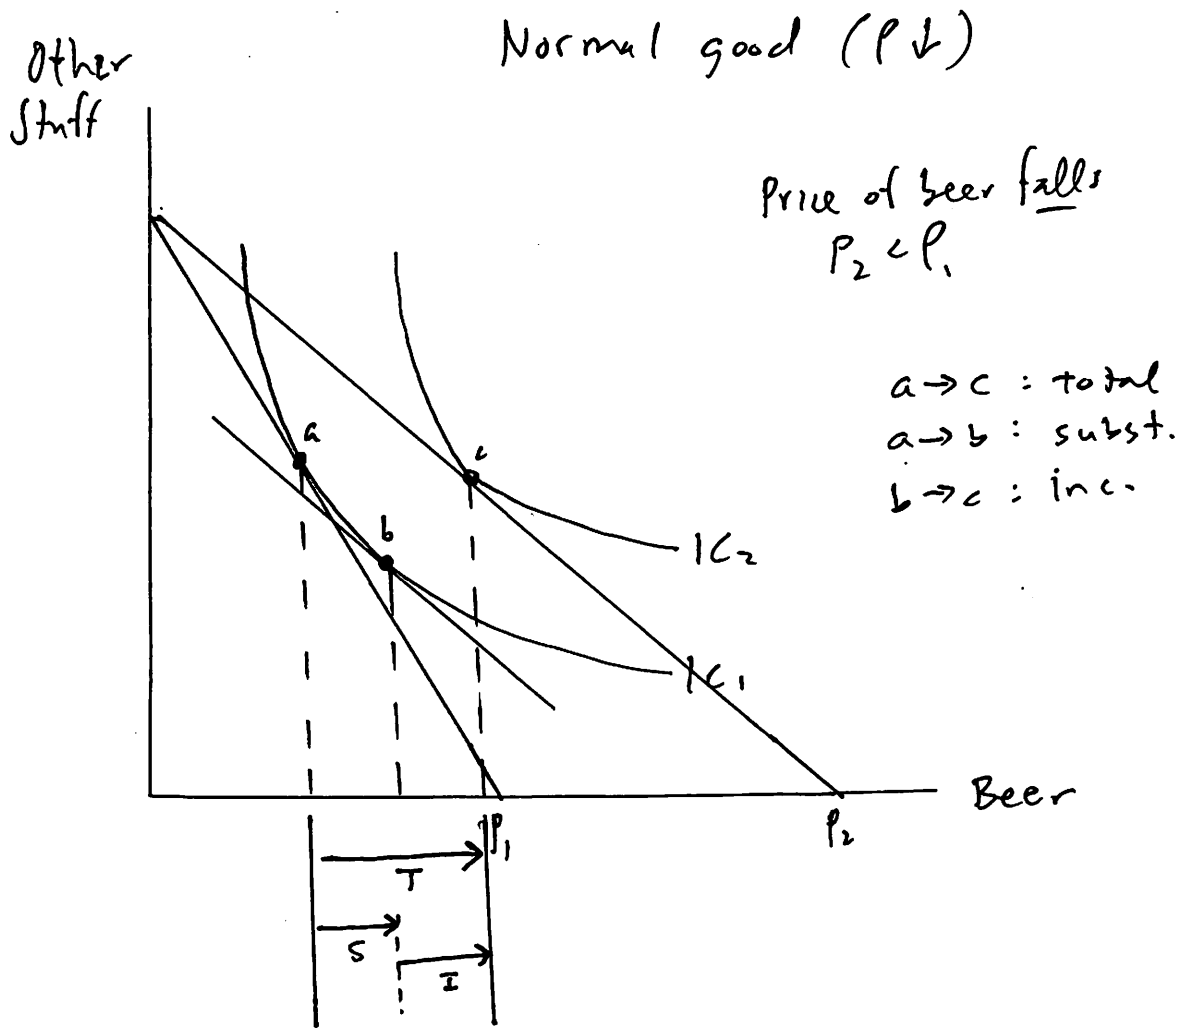 Normal good (P↓)
Other
Stuff
Price of beer falls
P₂ < P₁
a→c : total
a→b : subst.
b→c : inc.
a
c
b
IC₂
IC₁
Beer
P₁
P₂
T
S
I